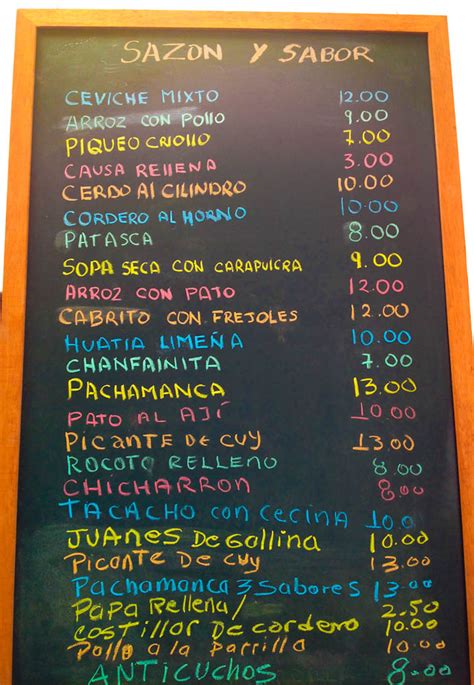 SAZON Y SABOR
CEVICHE MIXTO 12.00
ARROZ CON POllO 9.00
PIQUEO CRIOllO 7.00
CAUSA RELLENA 3.00
CERDO Al CILINDRO 10.00
CORDERO AL HORNO 10.00
PATASCA 8.00
SOPA SECA CON CARAPULCRA 9.00
ARROZ CON PATO 12.00
CABRITO CON FREJOLES 12.00
HUATIA LIMEÑA 10.00
CHANFAINITA 7.00
PACHAMANCA 13.00
PATO AL AJÍ 10.00
PICANTE DE CUY 13.00
ROCOTO RELLENO 8.00
CHICHARRON 8.00
TACACHO con CECINA 10.0
JUANES De Gallina 10.00
Picante De cuy 13.00
Pachamanca 3 Sabores 13.00
Papa Rellena/ 2.50
costillar De cordero 10.00
Pollo a la Parrilla 10.00
ANTICUCHOS 8.00